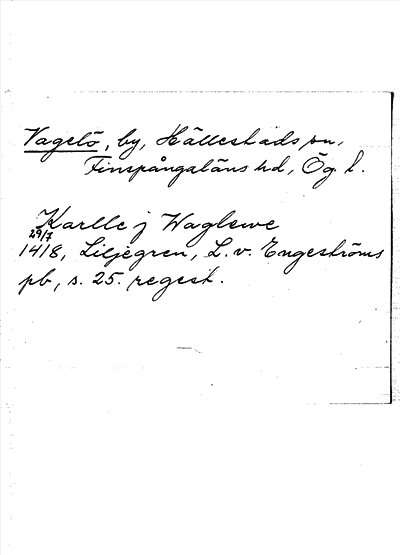 Vagelö, by, Hällestads sn,
Finspångaläns hd, Ög. l.
Karlle j Waglewe
29/7
1418, Liljegren, L. v. Engeströms
pb, s. 25. regest.